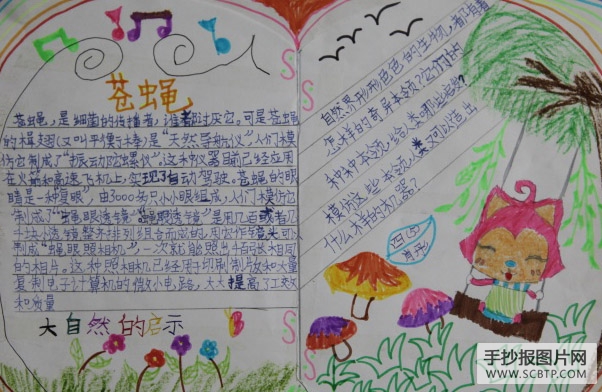 苍蝇
苍蝇，是细菌的传播者，谁都讨厌它。可是苍蝇
的楫翅（又叫平衡棒）是“天然导航仪”，人们模
仿它制成了“振动陀螺仪”。这种仪器目前已经应用
在火箭和高速飞机上，实现了自动驾驶。苍蝇的眼
睛是一种“复眼”，由3000多只小眼组成，人们模仿它
制成了“蝇眼透镜”。“蝇眼透镜”是用几百或者几
千块小透镜整齐排列组合而成的，用它作镜头可以
制成“蝇眼照相机”，一次就能照出千百张相同
的相片。这种照相机已经用于印刷制版和大量
复制电子计算机的微小电路，大大提高了工效
和质量
大自然的启示
自然界形形色色的生物，都有着
怎样的奇异本领？它们的
种种本领，给人类哪些启发？
模仿这些本领，人类又可以造出
什么样的机器？
四（5）
肖丹
手抄报图片网
WWW.SCBTP.COM